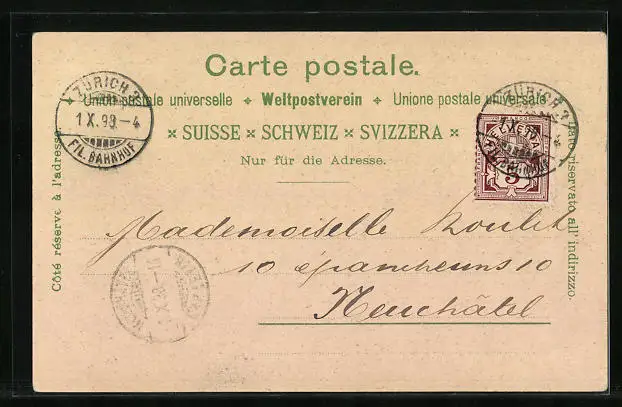 Carte postale.
Union postale universelle ✦ Weltpostverein ✦ Unione postale universale
× SUISSE × SCHWEIZ × SVIZZERA ×
Nur für die Adresse.
Côté réservé à l'adresse.
Lato riservato all' indirizzo.
ZÜRICH
1 X.98 – 4
FIL. BAHNHOF
ZÜRICH
5
Mademoiselle
10 épancheurs 10
Neuchâtel